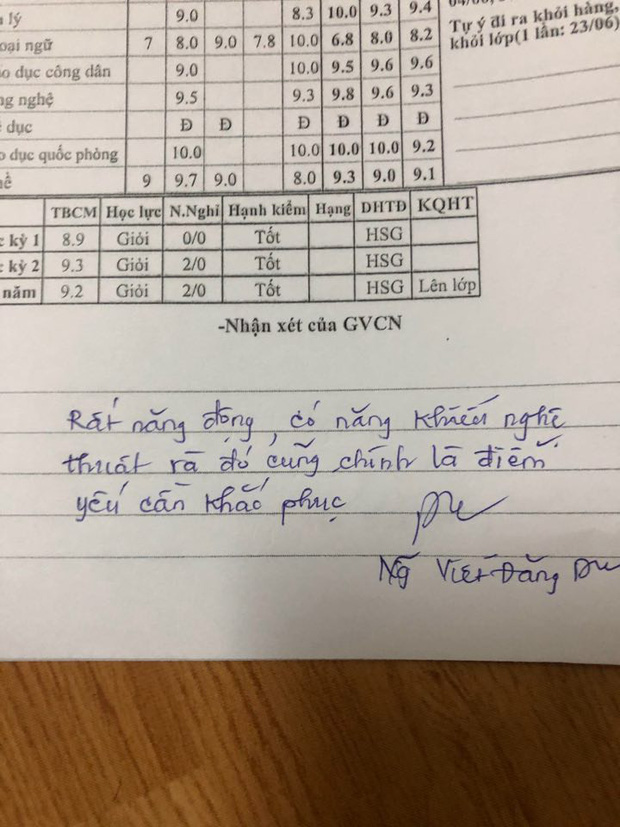 lý 9.0 8.3 10.0 9.3 9.4
Tự ý đi ra khỏi hàng,
khỏi lớp(1 lần: 23/06)
oại ngữ 7 8.0 9.0 7.8 10.0 6.8 8.0 8.2
o dục công dân 9.0 10.0 9.5 9.6 9.6
ng nghệ 9.5 9.3 9.8 9.6 9.3
dục Đ Đ Đ Đ Đ Đ
o dục quốc phòng 10.0 10.0 10.0 10.0 9.2
hề 9 9.7 9.0 8.0 9.3 9.0 9.1
TBCM Học lực N.Nghỉ Hạnh kiểm Hạng DHTĐ KQHT
c kỳ 1 8.9 Giỏi 0/0 Tốt HSG
c kỳ 2 9.3 Giỏi 2/0 Tốt HSG
năm 9.2 Giỏi 2/0 Tốt HSG Lên lớp
-Nhận xét của GVCN
Rất năng động, có năng khiếu nghệ
thuật và đó cũng chính là điểm
yếu cần khắc phục
Ng Viết Đăng Du